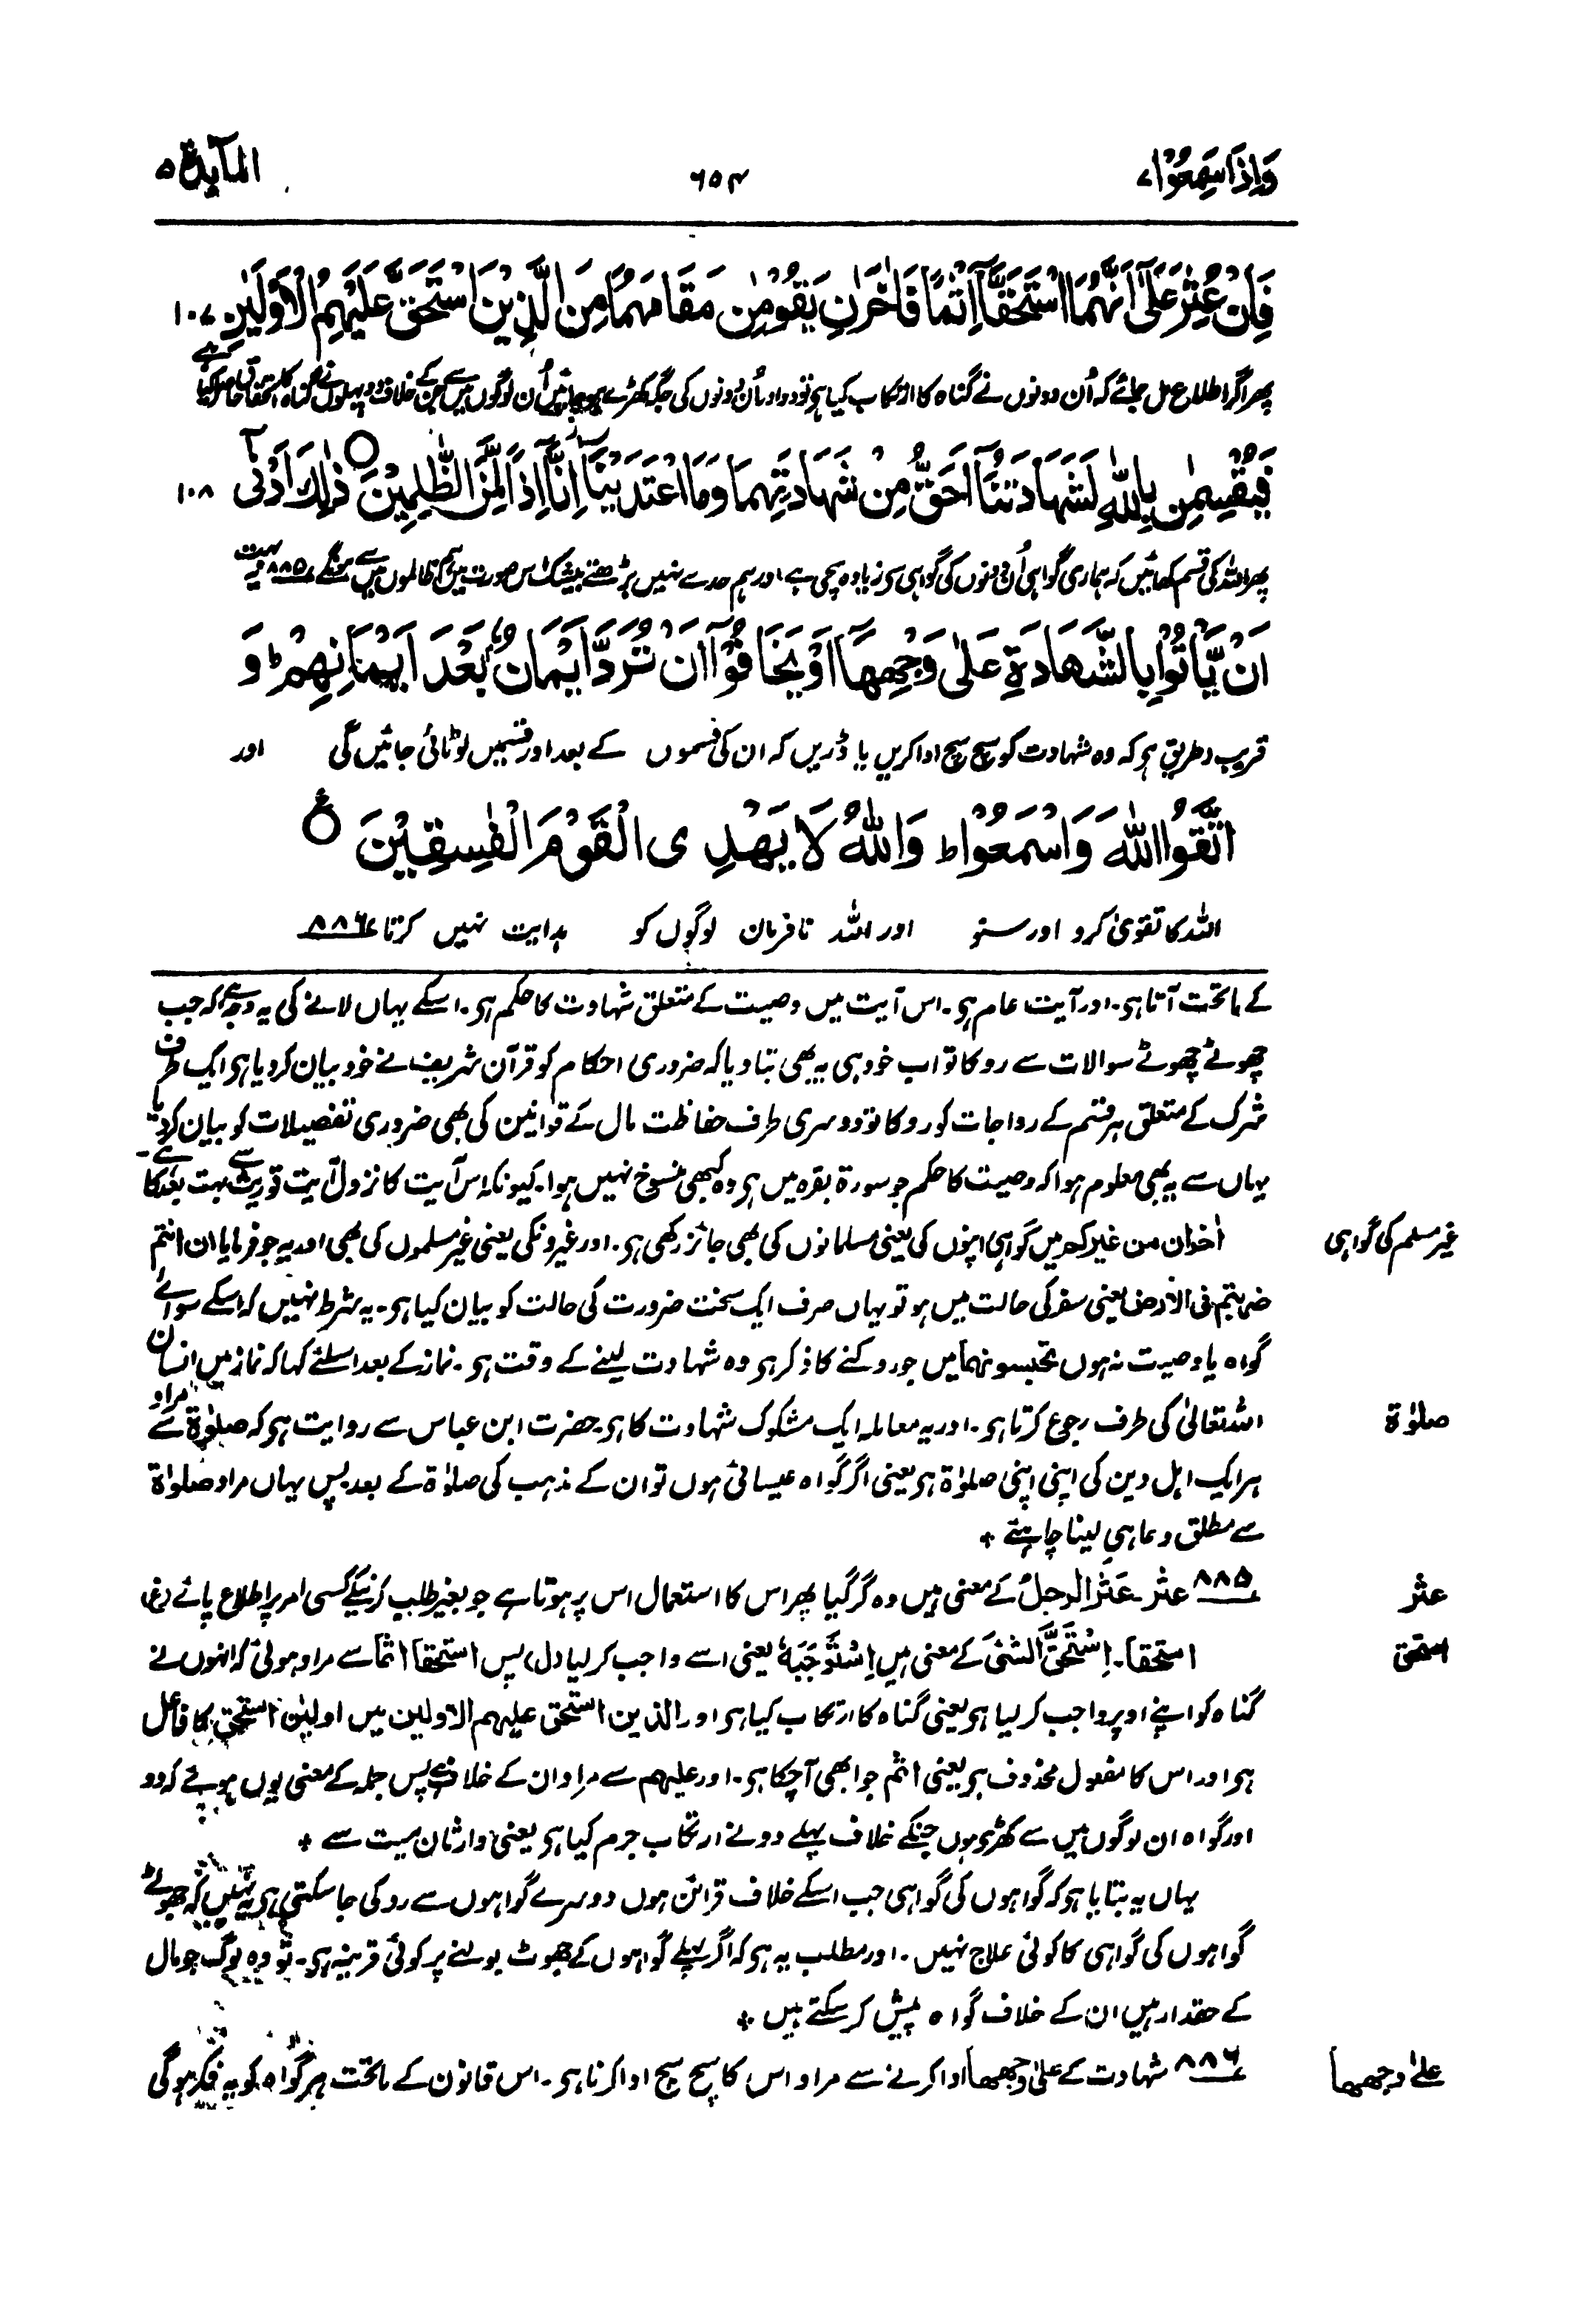 وَاِذَا سَمِعُوْا ۷
۶۵۴
المآئدة ۵
فَاِنْ عُثِرَ عَلٰۤى اَنَّهُمَا اسْتَحَقَّاۤ اِثْمًا فَاٰخَرٰنِ يَقُوْمٰنِ مَقَامَهُمَا مِنَ الَّذِيْنَ اسْتَحَقَّ عَلَيْهِمُ الْاَوْلَيٰنِ ۱۰۷
پھر اگر اطلاع مل جائے کہ اُن دونوں نے گناہ کا ارتکاب کیا ہو تو دو اور اُن دونوں کی جگہ کھڑے ہو جائیں اُن لوگوں میں سے جن کے خلاف دو پہلوں نے گناہ کا استحقاق حاصل کیا ہے
فَيُقْسِمٰنِ بِاللّٰهِ لَشَهَادَتُنَاۤ اَحَقُّ مِنْ شَهَادَتِهِمَا وَمَا اعْتَدَيْنَاۤ اِنَّاۤ اِذًا لَّمِنَ الظّٰلِمِيْنَ ○ ذٰلِكَ اَدْنٰۤى ۱۰۸
پھر اللہ کی قسم کھائیں کہ ہماری گواہی اُن دونوں کی گواہی سے زیادہ سچی ہے اور ہم حد سے نہیں بڑھتے بیشک اس صورت میں ہم ظالموں میں سے ہونگے ۸۸۵ یہ بہت
اَنْ يَّاْتُوْا بِالشَّهَادَةِ عَلٰى وَجْهِهَاۤ اَوْ يَخَافُوْۤا اَنْ تُرَدَّ اَيْمَانٌۢ بَعْدَ اَيْمَانِهِمْ ؕ وَ
قریب طریق ہے کہ وہ شہادت کو سچ سچ ادا کریں یا ڈریں کہ ان کی قسموں کے بعد اور قسمیں لوٹائی جائیں گی اور
اتَّقُوا اللّٰهَ وَاسْمَعُوْا ؕ وَاللّٰهُ لَا يَهْدِى الْقَوْمَ الْفٰسِقِيْنَ ○ ع
اللہ کا تقویٰ کرو اور سنو اور اللہ نافرمان لوگوں کو ہدایت نہیں کرتا ۸۸۶
کے ماتحت آتا ہے۔ اور آیت عام ہے۔ اس آیت میں وصیت کے متعلق شہادت کا حکم ہے۔ اسکے یہاں لانے کی یہ وجہ ہے کہ جب
چھوٹے چھوٹے سوالات سے روکا تو اب خود ہی یہ بھی بتا دیا کہ ضروری احکام کو قرآن شریف نے خود بیان کر دیا ہے ایک طرف
شرک کے متعلق ہر قسم کے رواجات کو روکا تو دوسری طرف حفاظت مال کے قوانین کی بھی ضروری تفصیلات کو بیان کر دیا ہے۔
یہاں سے یہ بھی معلوم ہوا کہ وصیت کا حکم جو سورۃ بقرہ میں ہے وہ کبھی منسوخ نہیں ہوا۔ کیونکہ اس آیت کا نزول آیت توریث سے بہت بعد کا
غیر مسلم کی گواہی
اٰخران من غیرکم میں گواہی اپنوں کی یعنی مسلمانوں کی بھی جائز رکھی ہے۔ اور غیروں کی یعنی غیر مسلموں کی بھی اور یہ جو فرمایا ان انتم
ضربتم فی الارض یعنی سفر کی حالت میں ہو تو یہاں صرف ایک سخت ضرورت کی حالت کو بیان کیا ہے۔ یہ شرط نہیں کہ اسکے سوائے
گواہ یا وصیت نہ ہوں تحبسونہما میں جو روکنے کا ذکر ہے وہ شہادت لینے کے وقت ہے۔ نماز کے بعد اسلئے کہا کہ نماز میں انسان
صلوٰۃ
اللہ تعالیٰ کی طرف رجوع کرتا ہے۔ اور یہ معاملہ ایک مشکوک شہادت کا ہے۔ حضرت ابن عباس سے روایت ہے کہ صلوٰۃ سے مراد
ہر ایک اہل دین کی اپنی اپنی صلوٰۃ ہے یعنی اگر گواہ عیسائی ہوں تو ان کے مذہب کی صلوٰۃ کے بعد پس یہاں مراد صلوٰۃ
سے مطلق دعا ہی لینا چاہئے +
عثر
۸۸۵ عثر۔ عَثَرَ الرجلُ کے معنی ہیں وہ گر گیا پھر اس کا استعمال اس پر ہوتا ہے جو بغیر طلب کرنیکے کسی امر پر اطلاع پائے (غ)
استحق
استحقا۔ اِسْتَحَقَّ الشئَ کے معنی ہیں اِسْتَوْجَبَهٗ یعنی اسے واجب کر لیا (ل) پس استحقا اثما سے مراد ہوئی کہ انہوں نے
گناہ کو اپنے اوپر واجب کر لیا ہے یعنی گناہ کا ارتکاب کیا ہے اور الذین استحق علیہم الاولین میں اولیٰن استحق کا فاعل
ہے اور اس کا مفعول محذوف ہے یعنی اثم جو ابھی آچکا ہے۔ اور علیہم سے مراد ان کے خلاف ہے پس جملہ کے معنی یوں ہوئے کہ دو
اور گواہ ان لوگوں میں سے کھڑے ہوں جنکے خلاف پہلے دو نے ارتکاب جرم کیا ہے یعنی وارثان میت سے +
یہاں یہ بتایا ہے کہ گواہوں کی گواہی جب اسکے خلاف قرائن ہوں دوسرے گواہوں سے رد کی جا سکتی ہے یہ نہیں کہ جھوٹے
گواہوں کی گواہی کا کوئی علاج نہیں۔ اور مطلب یہ ہے کہ اگر پہلے گواہوں کے جھوٹ بولنے پر کوئی قرینہ ہے۔ تو وہ لوگ جو مال
کے حقدار ہیں ان کے خلاف گواہ پیش کر سکتے ہیں +
علیٰ وجھھا
۸۸۶ شہادت کے علیٰ وجھھا ادا کرنے سے مراد اس کا سچ سچ ادا کرنا ہے۔ اس قانون کے ماتحت ہر گواہ کو یہ فکر ہوگی